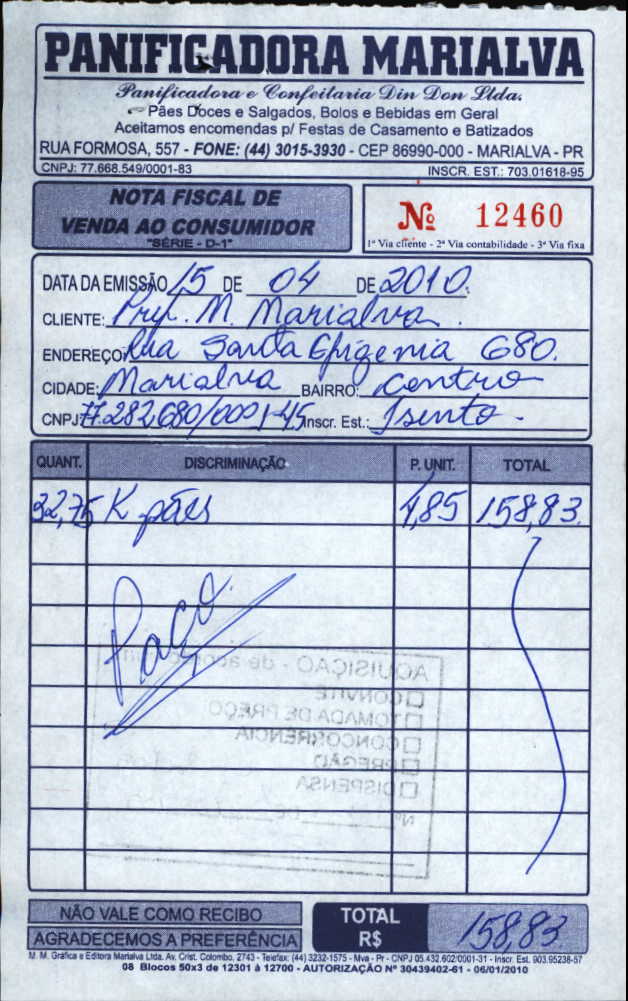 PANIFICADORA MARIALVA
Panificadora e Confeitaria Din Don Ltda.
Pães Doces e Salgados, Bolos e Bebidas em Geral
Aceitamos encomendas p/ Festas de Casamento e Batizados
RUA FORMOSA, 557 - FONE: (44) 3015-3930 - CEP 86990-000 - MARIALVA - PR
CNPJ: 77.668.549/0001-83 INSCR. EST.: 703.01618-95
NOTA FISCAL DE
VENDA AO CONSUMIDOR
"SÉRIE - D-1"
Nº 12460
1ª Via cliente - 2ª Via contabilidade - 3ª Via fixa
DATA DA EMISSÃO 15 DE 04 DE 2010.
CLIENTE: Pref. M. Marialva.
ENDEREÇO: Rua Santa Efigenia 680.
CIDADE: Marialva BAIRRO: Centro
CNPJ: 77.282.680/0001-45 Inscr. Est.: Isento.
QUANT. DISCRIMINAÇÃO P. UNIT. TOTAL
32,75 K pães 4,85 158,83.
Paço
AQUISIÇÃO - de acordo
CONVITE
TOMADA DE PREÇO
CONCORRÊNCIA
PREGÃO
DISPENSA
Nº DE
NÃO VALE COMO RECIBO
AGRADECEMOS A PREFERÊNCIA
TOTAL
R$ 158,83.
M. M. Gráfica e Editora Marialva Ltda. Av. Crist. Colombo, 2743 - Telefax: (44) 3232-1575 - Mva - Pr - CNPJ 05.432.602/0001-31 - Inscr. Est. 903.95238-57
08 Blocos 50x3 de 12301 à 12700 - AUTORIZAÇÃO Nº 30439402-61 - 06/01/2010